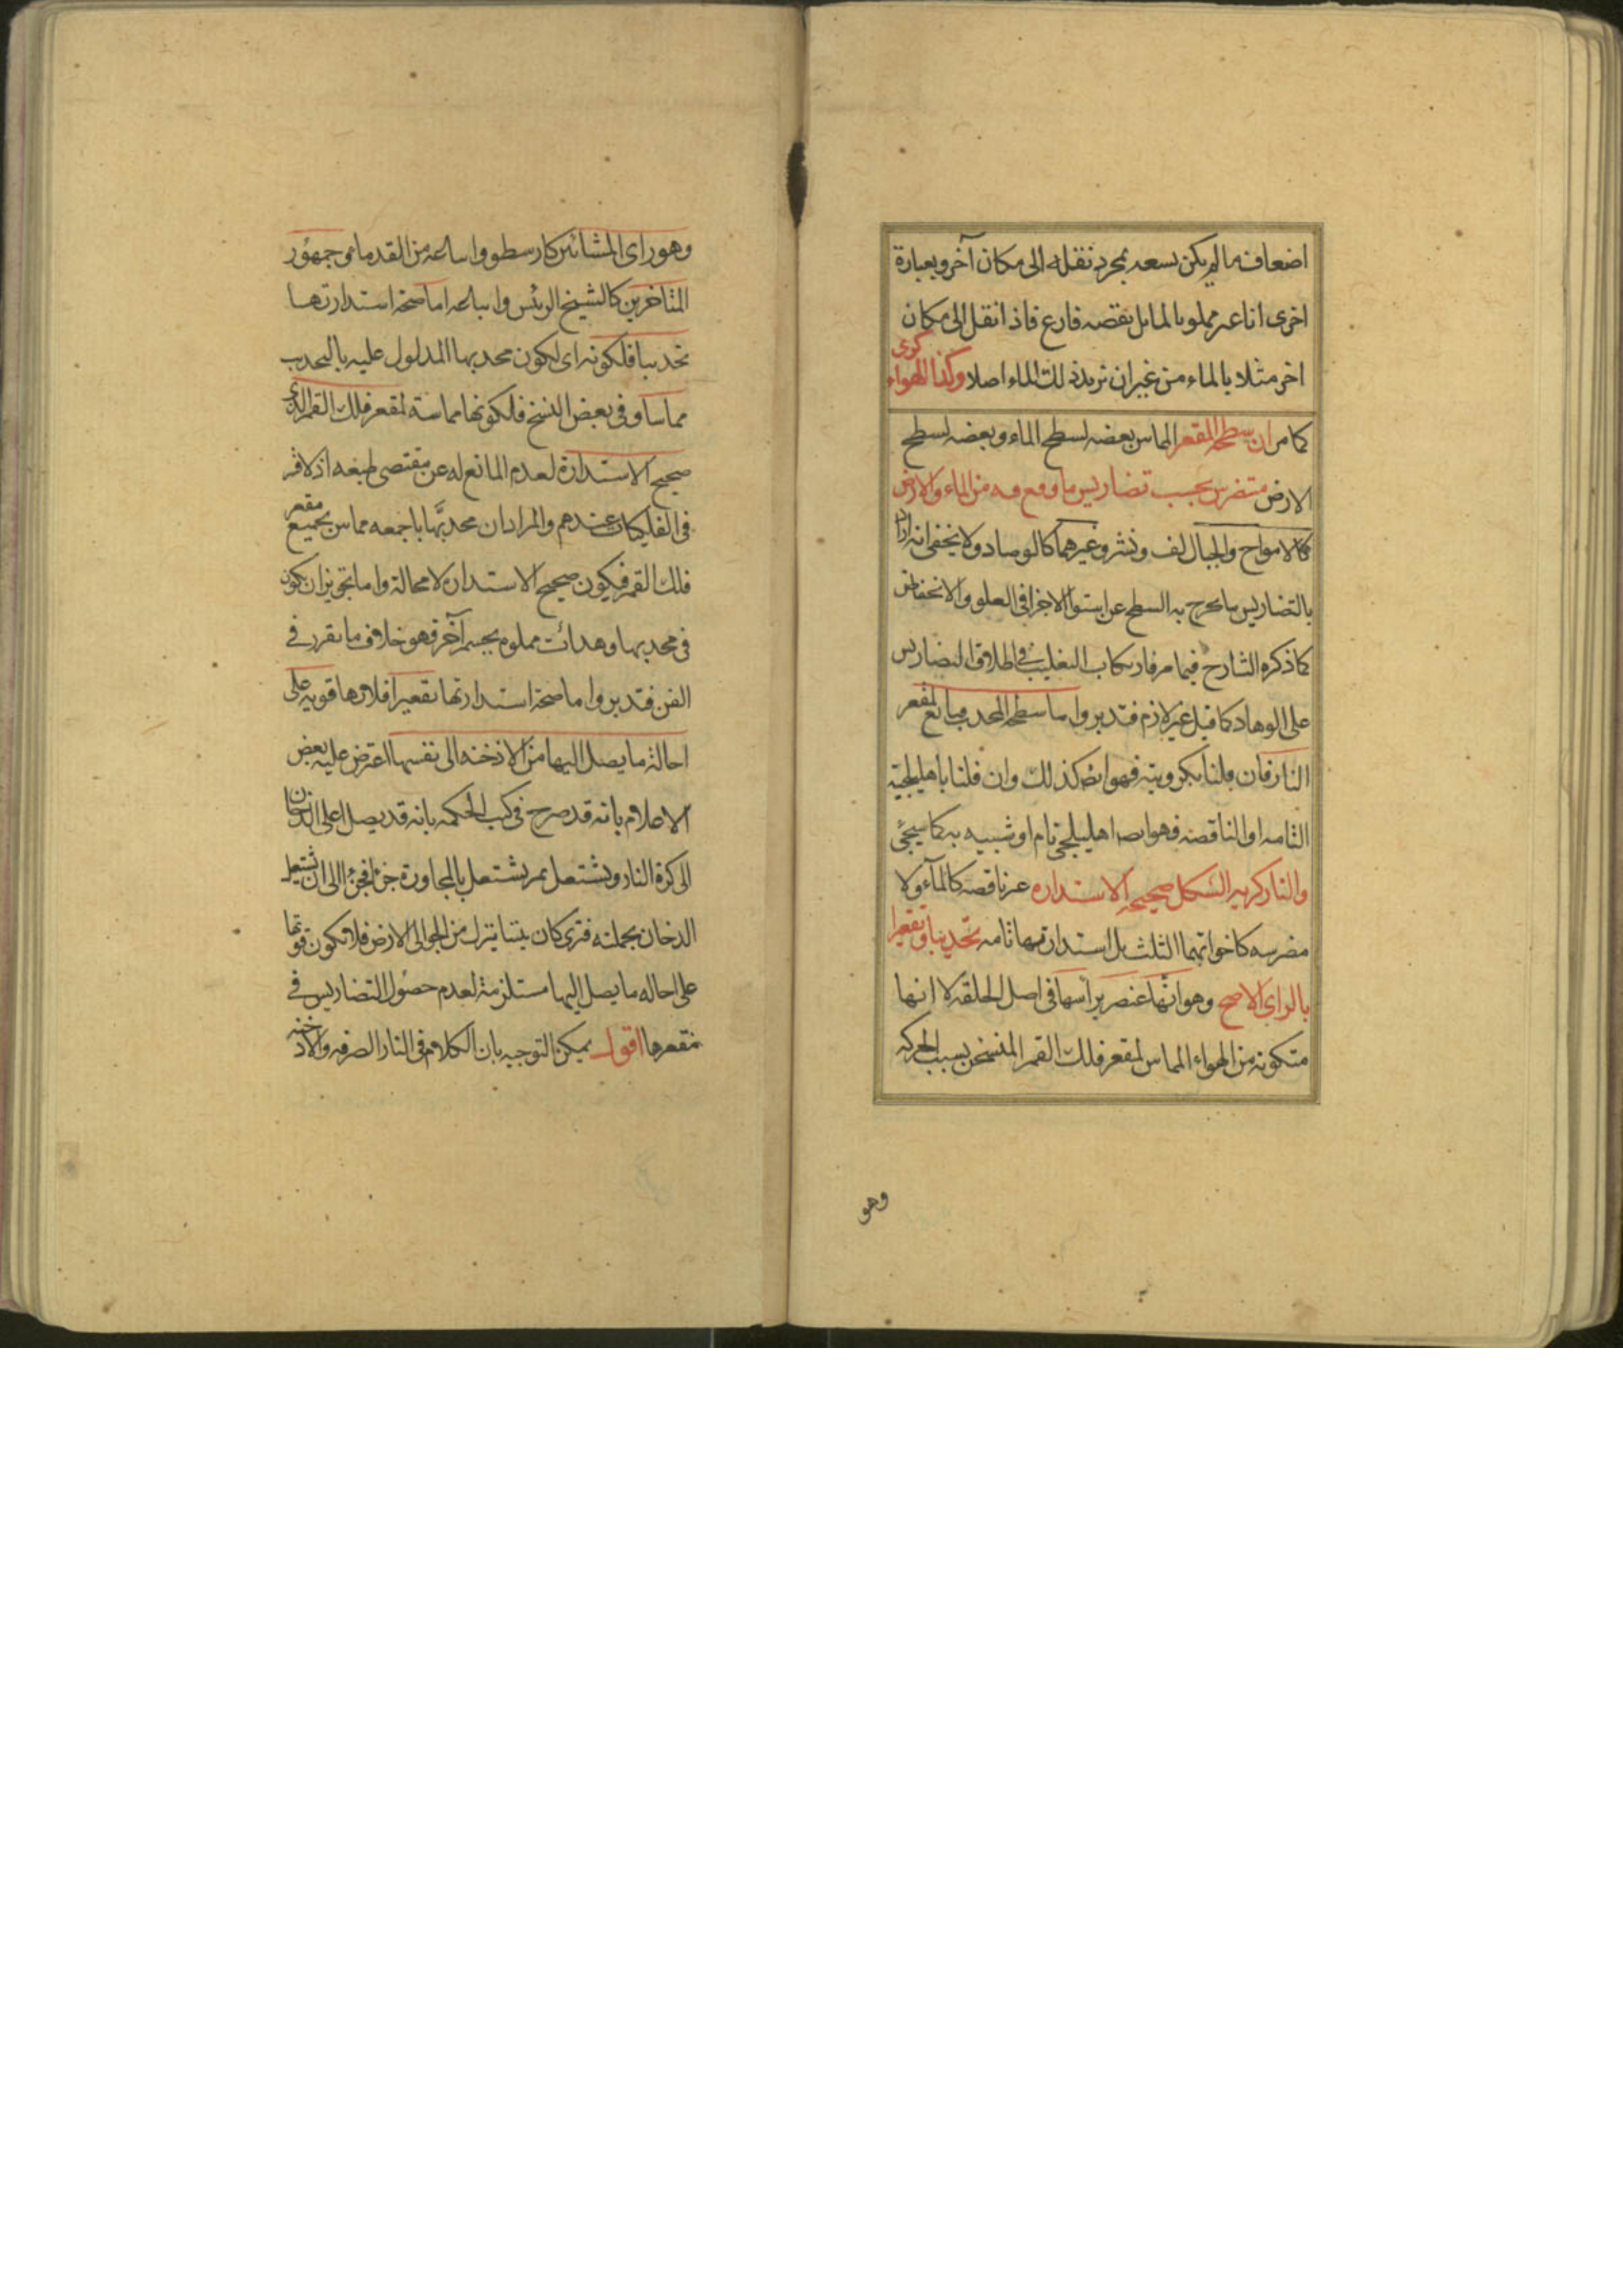 اضعاف ما لم يكن يسعه بمجرد نقله الى مكان آخر وبعبارة
اخرى اناء غير مملو بالماء بل بقصه فارع فاذا نقل الى مكان
اخر مثلا بالماء من غير ان نريد ذلك الماء اصلا وكذا الهواء كرى
كما مر ان سطحه المقعر المماس بعضه لسطح الماء وبعضه لسطح
الارض متضرس بحسب تضاريس ما وقع فيه من الماء والارض
كالامواح والجبال لف ونشر وغيرهما كالوهاد ولا يخفى انه اذا
بالتضاريس ما يخرج به السطح عن استواء الاجزا فى العلو والانخفاض
كما ذكره الشارح فيما مر فارتكاب التغليب فى اطلاق التضاريس
على الوهاد كما قيل غير لازم فتدبر واما سطحه المحدب فتابع لمقعر
النار فان قلنا بكرويته فهو ايض كذلك وان قلنا باهليلجية
التامه او الناقصه فهو ايضا اهليلجى تام او شبيه به كما سيجئ
والنار كريه الشكل صحيحه الاستداره غير ناقصه كالمآء ولا
مضرسه كاخواتهما الثلث بل استدارتها تامه تحديبا وتقعيرا
بالراى الاصح وهو انها عنصر براسها فى اصل الخلقه لا انها
متكونه من الهواء المماس لمقعر فلك القمر المتسخن بسبب الحركه
وهو
وهو راى المشائين كارسطو واتباعه من القدما من جمهور
المتاخرين كالشيخ الرئس واتباعه اما صحة استدارتها
تحديبا فلكونه اى لكون محدبها المدلول عليه بالتحديب
مماسا وفى بعض النسخ فلكونها مماسة لمقعر فلك القمر الذى
صحيح الاستدارة لعدم المانع له عن مقتضى طبعه اذ لا قسر
فى الفلكيات عندهم والمراد ان محدبها باجمعه مماس بجميع مقعر
فلك القمر فيكون صحيح الاستداره لا محالة واما تجويز ان يكون
فى محدبها وهدات مملوه بجسم آخر فهو خلاف ما تقرر فى
الفن فتدبر واما صحة استدارتها تقعيرا فلانها قويه على
احالة ما يصل اليها من الادخنه الى نفسها اعترض عليه بعض
الاعلام بانه قد صرح فى كتب الحكمه بانه قد يصل اعلى الدخان
الى كرة النار ويشتعل ثم يشتعل بالمجاورة جزء فجزء الى ان يشتعل
الدخان بجملته فترى كان تنينا ينزل من الجو الى الارض فلا تكون قوتها
على احاله ما يصل اليها مستلزمة لعدم حصول التضاريس فى
مقعرها اقول يمكن التوجيه بان الكلام فى النار الصرفه والادخنه